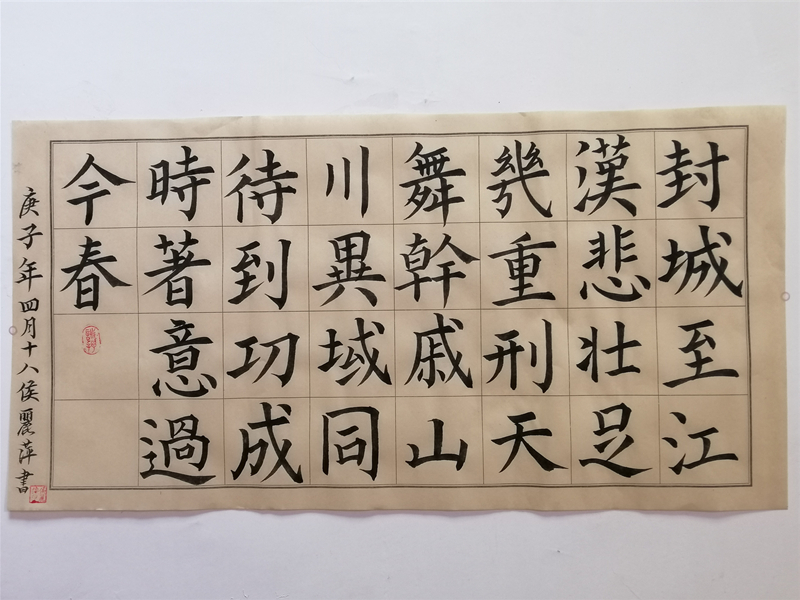 封城至江
漢悲壯足
幾重刑天
舞幹戚山
川異域同
待到功成
時著意過
今春
庚子年四月十八侯麗萍書